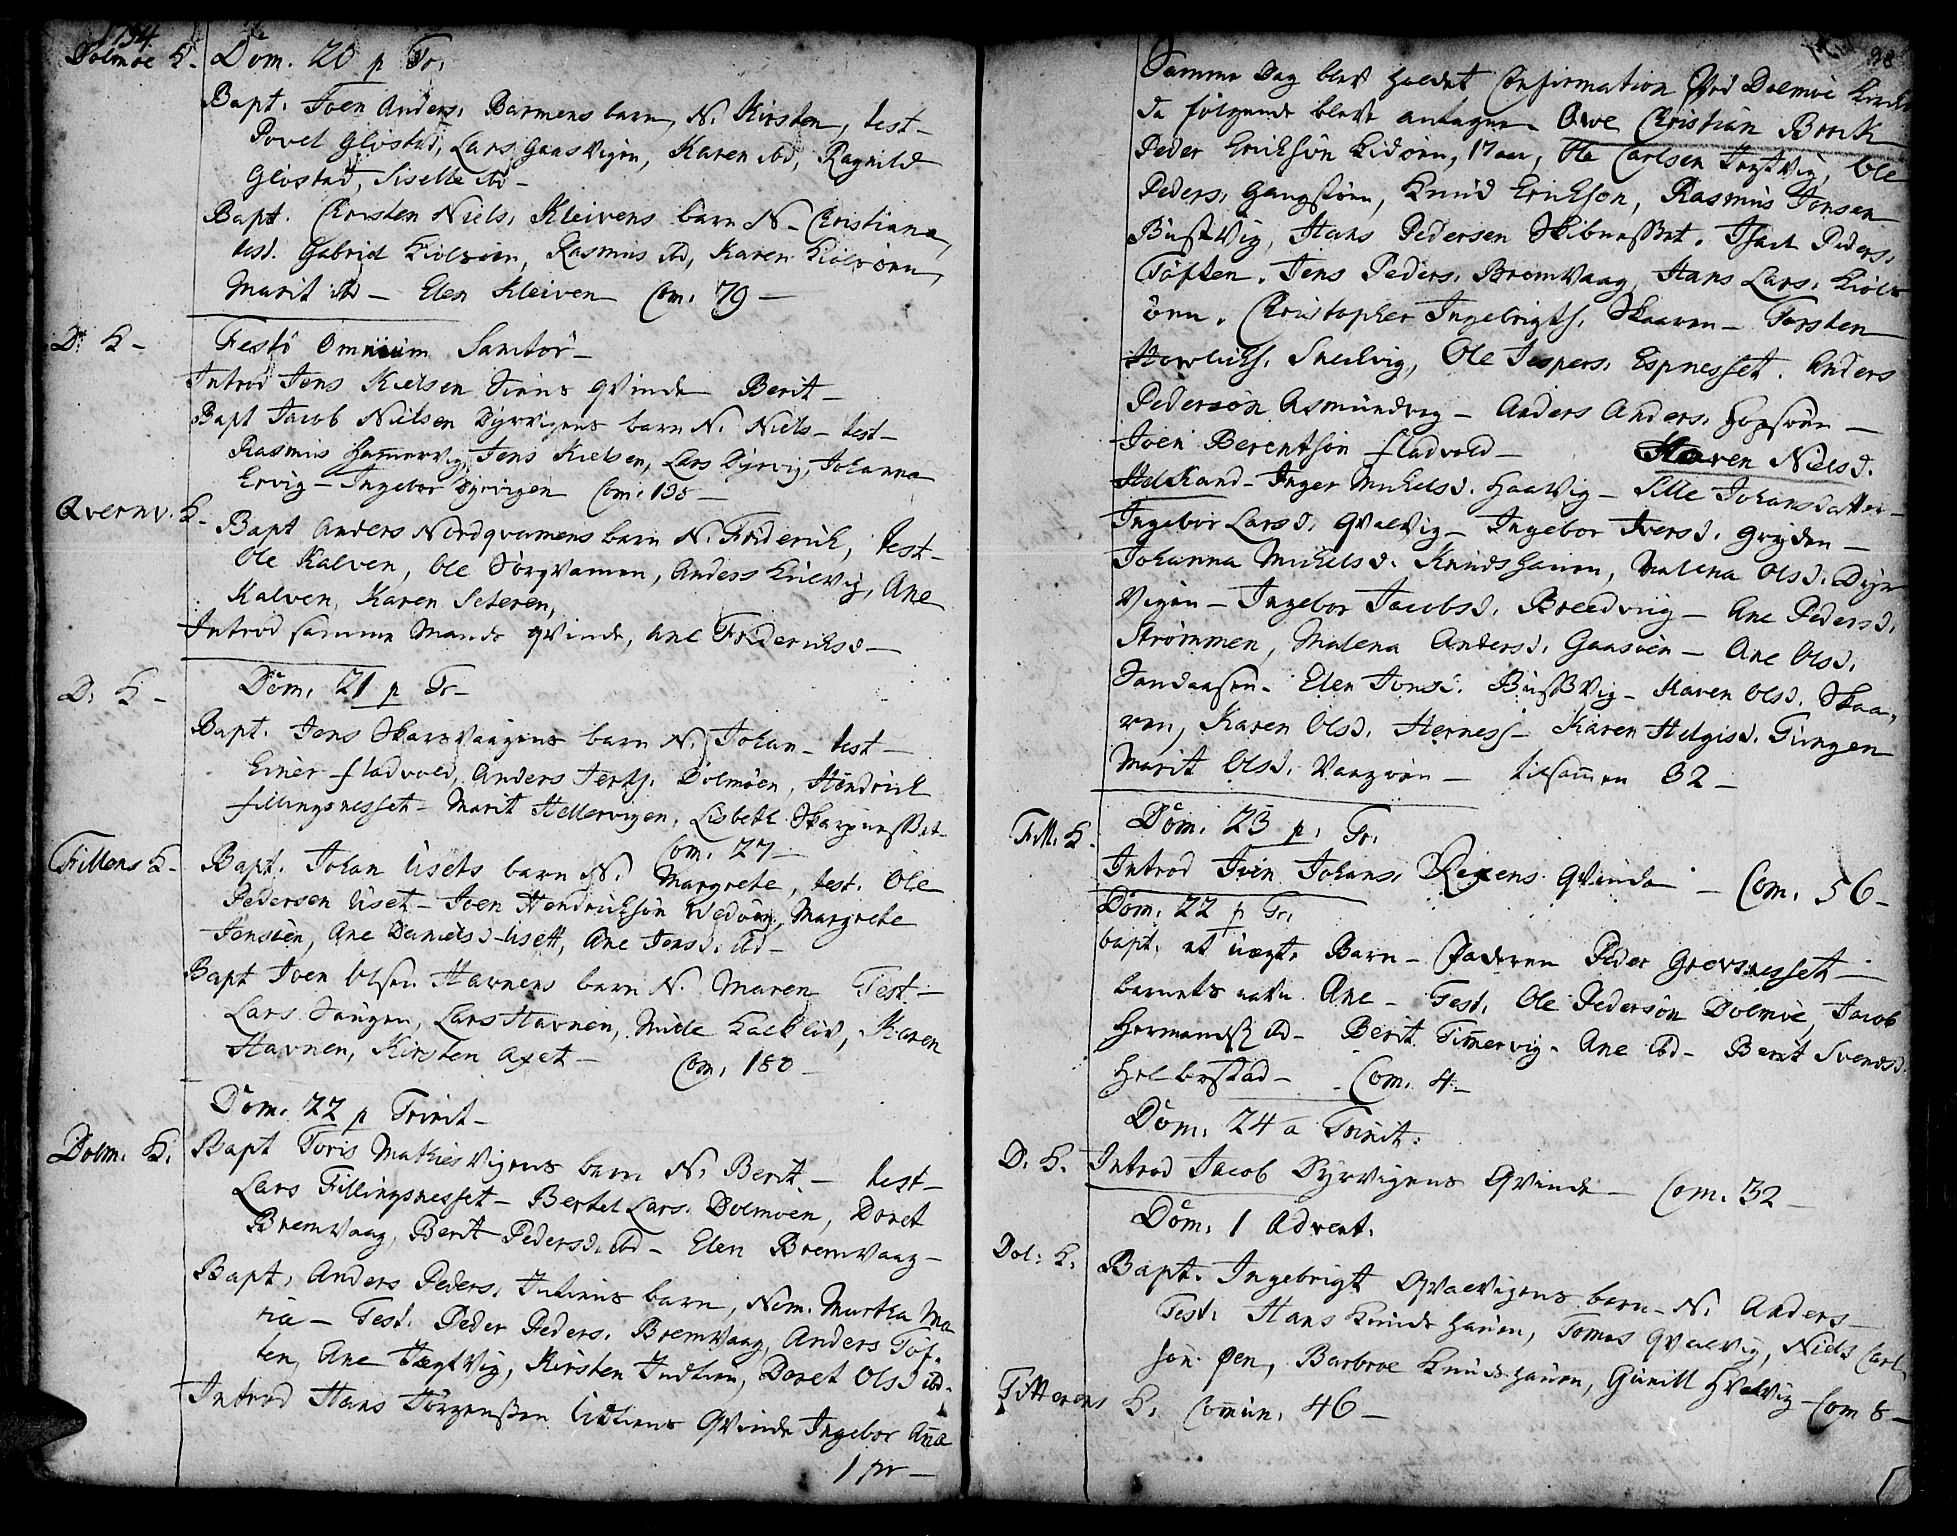 1754.
Dolmøe K. Dom. 20 p Tr.
Bapt. Joen Anders. Barmens barn, N. Kirsten, test-
Povel Gløstad, Lars Gaasvigen, Karen ibd, Ragnild
Gløstad, Siselle ibd-
Bapt. Christen Niels. Kleivens barn N- Christiana,
test. Gabriel Kiølsøen, Rasmus ibd, Karen Kiølsøen,
Marit ibd - Elen Kleiven Com. 79 -
D. K - Festo Omnium Sanctor-
Introd Jens Kielsen qvinde Berit -
Bapt Jacob Nielsen Dyrvigens barn N. Niels - test-
Rasmus Hammervig, Jens Kielsen, Lars Dyrvig, Johanna
Ervig - Ingebor Dyrvigen Com. 138 -
Qvernv. K. Bapt Anders Nordqvamens barn N. Friderich, test-
Ole Kalven, Ole Sørqvamen, Anders Kulvig, Ane
Kalven, Karen Seteren,
Introd samme Mands qvinde, Ane Friderichsd -
D. K - Dom. 21 p Tr-
Bapt. Jens Skarsvaagens barn N. Johan - test-
Einer Fladvold, Anders Dolmøen, Hendrich
Fillingsnesset - Marit Hellervigen, Lisbeth Skarpnesset
Com. 27 -
Fillens K - Bapt. Johan Usets barn N. Margrete, test. Ole
Pedersen Uset - Joen Hendrichsøn Vedøen, Margrete
Jonsøen, Ane Danielsd Usett, Ane Jensd. ibd -
Bapt Joen Olsen Havnens barn N. Maren Test. -
Lars Saugen, Lars Havnen, Karen
Havnen, Kirsten Axet - Com. 180 -
Dom. 22 p Trinit -
Dolm. K. Bapt Joris Mathiesvigens barn N. Berit - test-
Lars Fillingsnesset - Bertel Lars. Dolmøen, Doret
Bremvaag, Berit Pedersd. ibd - Elen Bremvaag -
Bapt. Anders Peders. barn, Nom. Martha Ma
ria - Test. Peder Peders. Bremvaag, Anders Tøf-
ten, Ane Jægtvig, Kirsten, Doret Olsd ibd.
Introd Hans Jørgensen Qvinde Ingebor Ana
1 pr -
98
Samme Dag blev holdet Confirmation ved Dolmøe Kirke
da følgende bleve antagne. Owe Christian Brock
Peder Erichsøn Kidøen, 17 aar, Ole Carlsen Jegtvig, Ole
Peders. Gangstøen, Knud Erichson, Rasmus Jonsen
Bustvig, Hans Pedersen Skibnesset. Isach Peders.
Tøften. Jens Peders. Bremvaag, Hans Lars. Kiøls
øen. Christopher Ingebrigts. Skaaren - Torsten
Snekvig, Ole Jespers. Espnesset. Anders
Pedersøn Asmundvig - Anders Anders. Hopsøen -
Joen Berentsøn Fladvold - Maren Nielsd.
Helskand - Inger Michelsd. Haavig - Sille Johansdatter -
Ingebor Larsd. Qvalvig - Ingebor Iversd. Gryden -
Johanna Michelsd. Knudshauen, Malena Olsd. Dyr
vigen - Ingebor Jacobsd. Breedvig - Ane Pedersd.
Strømmen, Malena Andersd. Gaasøen - Ane Olsd.
Elen Jonsd. Bustvig - Maren Olsd. Skaa,
ren, Karen Olsd. Herness - Karen Helgisd. Tungen
Marit Olsd. Vaagøen - tilsammen 32 -
Fill. K. Dom. 23 p. Tr.
Introd Joen Johans. qvinde - Com. 56 -
Dom. 22 p Tr.
bapt. et uægt. Barn - Faderen Peder Grevsnesset -
barnets navn Ane - Test. Ole Pedersøn Dolmøe, Jacob
Hermands. ibd - Berit Timmervig - Ane ibd - Berit Svendsd.
Helbostad - Com. 4 -
Dom. 24 a Trinit:
D. K. Introd Jacob Dyrvigens Qvinde - Com. 32 -
Dom. 1 Advent.
Dol: K. Bapt. Ingebrigt Qvalvigens barn - N. Anders -
Test. Hans Knudshauen, Tomas Qvalvig, Niels Carl,
søn Øen, Barbroe Knudshauen, Gunill Hvalvig - Com 8 -
Titterens K. Commun. 46 -